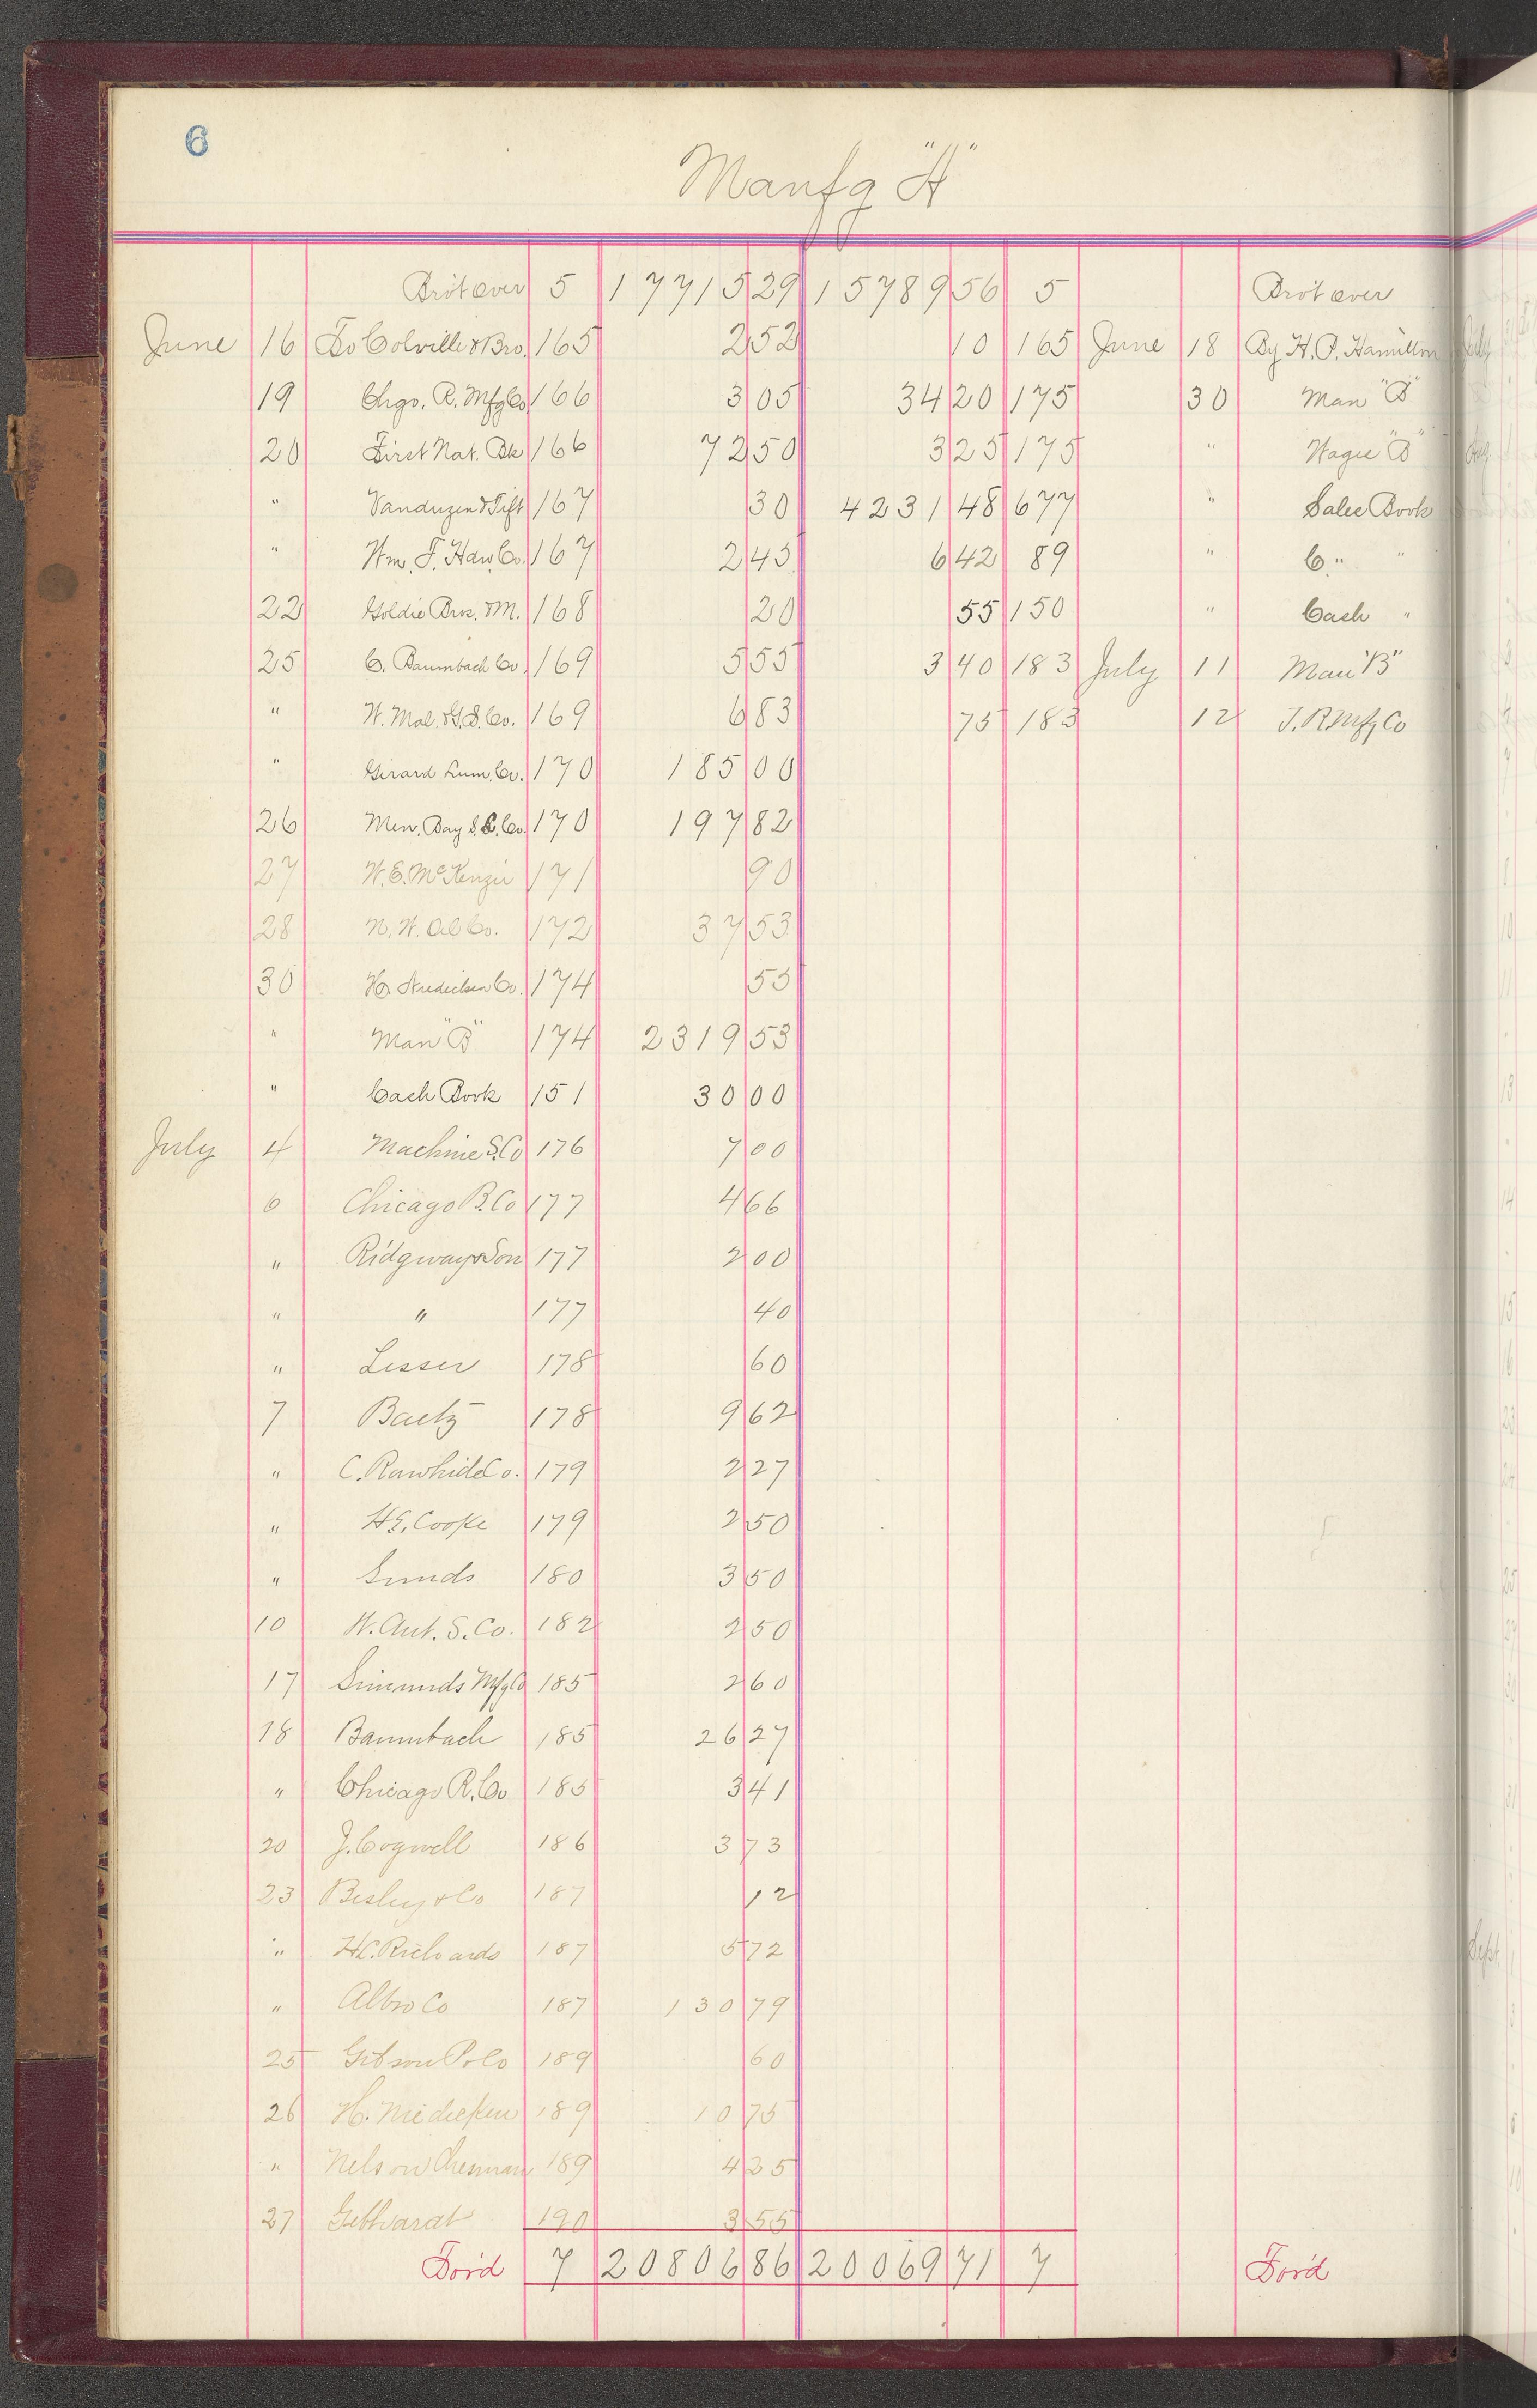 6
Manfg "A"
Bro't over 5 17715 29 15789 56 5 Bro't over
June 16 To Colville & Bro. 165 2 52 10 165 June 18 By H. P. Hamilton
19 Chgo. R. Mfg Co 166 3 05 34 20 175 30 Man "B"
20 First Nat. Bk 166 72 50 3 25 175 " Wages "B"
" Vanduzen & Tift 167 30 4231 48 677 " Sales Book
" Wm. F. Haw. Co. 167 2 45 6 42 89 " C. " "
22 Goldie Bros. & M. 168 20 55 150 " Cash "
25 C. Baumbach Co. 169 5 55 3 40 183 July 11 Man "B"
" W. Mal. & G. S. Co. 169 6 83 75 183 12 J. R Mfg Co
" Girard Lum. Co. 170 185 00
26 Men. Bay S. C. Co. 170 197 82
27 W. E. McKenzie 171 90
28 N. W. Oil Co. 172 37 53
30 H. Co. 174 55
" Man "B" 174 2319 53
" Cash Book 151 30 00
July 4 Machine S. Co 176 7 00
6 Chicago R. Co 177 4 66
" Ridgway & Son 177 2 00
" " 177 40
" Lesser 178 60
7 Baetz 178 9 62
" C. Rawhide Co. 179 2 27
" H. E. Cooke 179 2 50
" Sunds 180 3 50
10 W. Aut. S. Co. 182 2 50
17 Simunds Mfg Co 185 2 60
18 Baumbach 185 26 27
" Chicago R. Co 185 3 41
20 J. Cogwell 186 3 73
23 Besley & Co 187 12
" H. C. Richards 187 5 72
" Albro Co 187 130 79
25 Gibson P Co 189 60
26 H. 189 10 75
" Nelson 189 4 35
27 Gebhardt 190 3 55
For'd 7 20806 86 20069 71 7 For'd